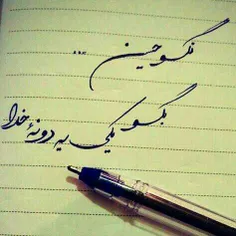 نگو حسین ...
بگو یکی یه دونهٔ خدا